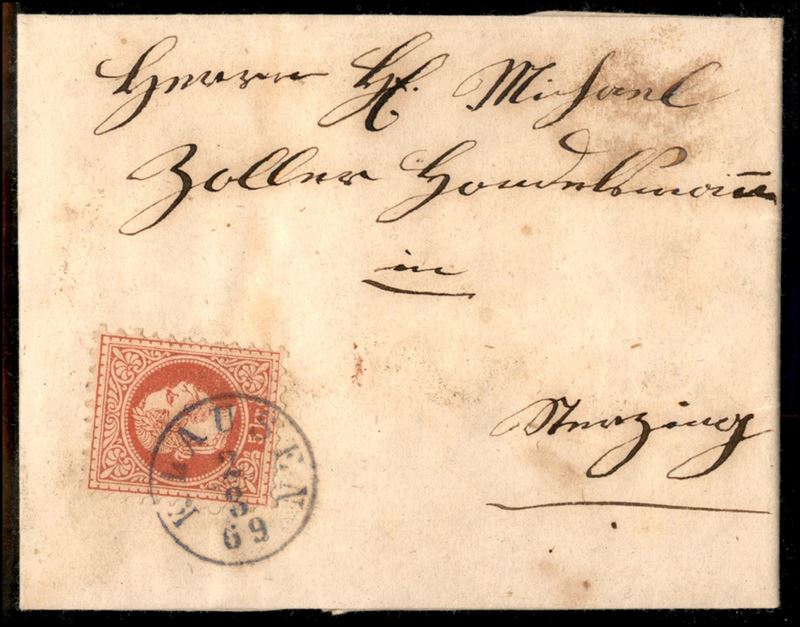 Herrn H. Michael
Zoller Handelsmann
in
Sterzing
KLAUSEN
3
69